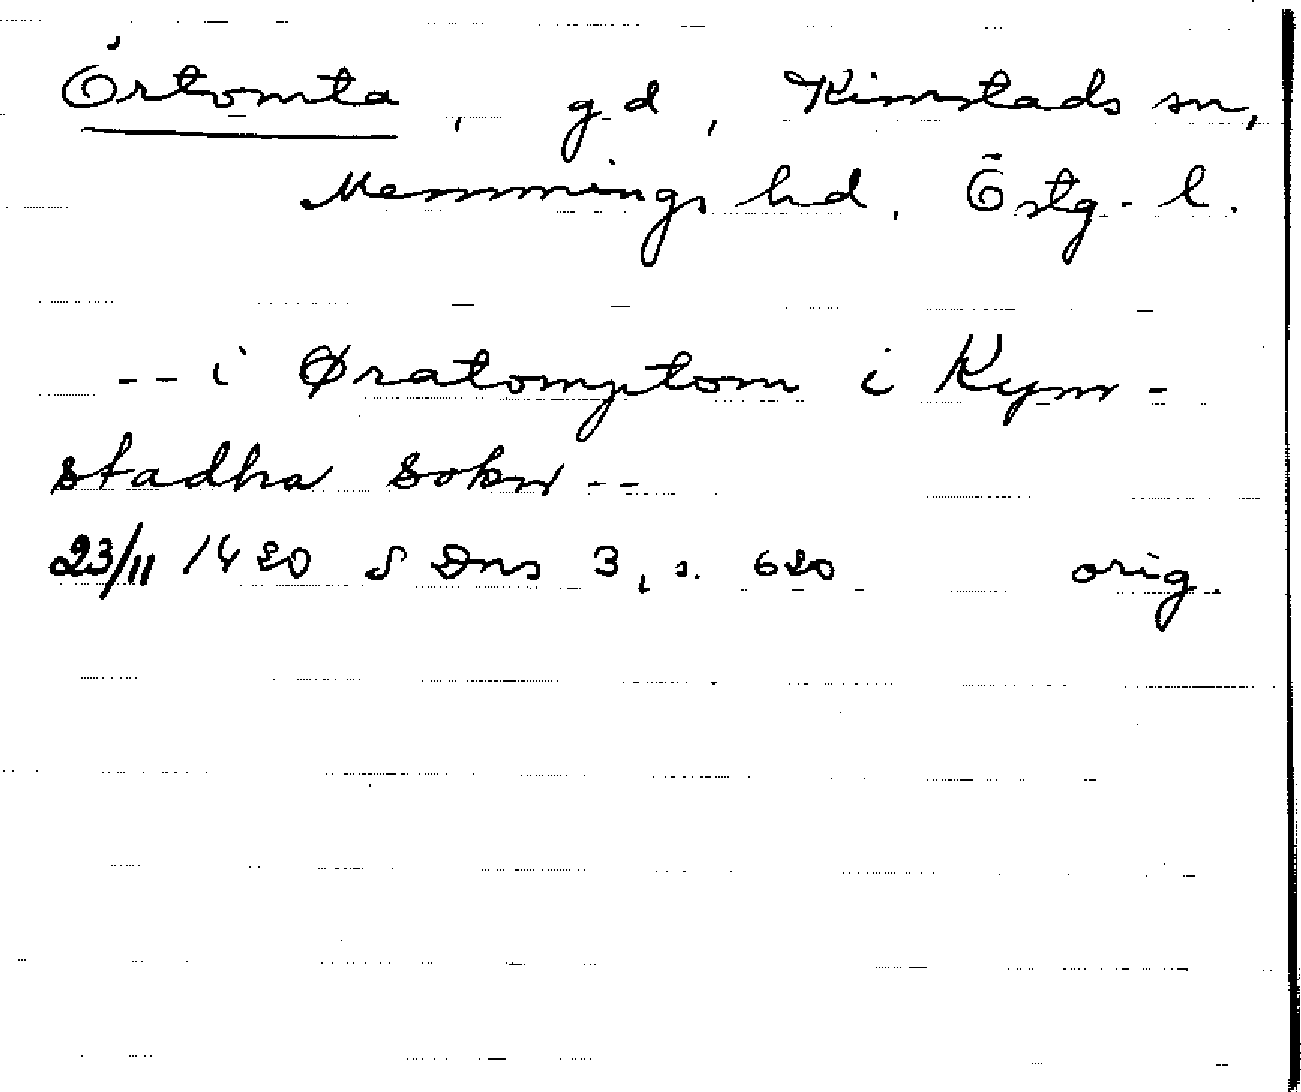 Örtomta, gd, Kimstads sn,
Memmings hd, Östg. l.
-- i Øratomptom i Kym-
stadha sokn --
23/11 1420 S Dns 3, s. 620 orig.